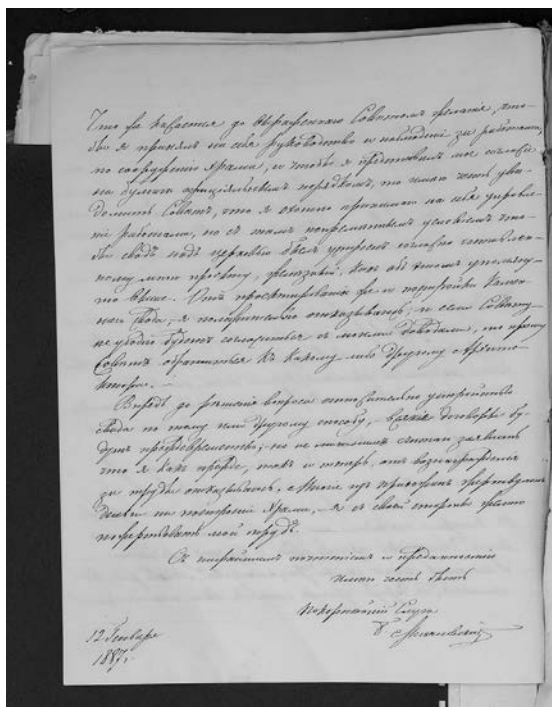 Что же касается до выраженнаго Советомъ желанія, что-
бы я принялъ на себя руководство и наблюденіе за работами,
по сооруженію Храма, и чтобы я представилъ мое согласіе
на бумаге оффиціальнымъ порядкомъ, то имею честь уве-
домить Советъ, что я охотно принимаю на себя управле-
ніе работами, но съ темъ непременнымъ условіемъ что-
бы сводъ надъ церковью былъ устроенъ согласно составлен-
ному мною проэкту, железный, какъ объ этомъ упомяну-
то выше. Отъ проэктированія же и постройки камен-
наго свода, я положительно отказываюсь; и если Совету
не угодно будетъ согласиться съ моими доводами, то прошу
Советъ обратиться къ какому либо другому Архите-
ктору. —
Впредь до решенія вопроса относительно устройства
свода по тому или другому способу, всякіе договоры бу-
дутъ преждевременны; но не лишнимъ считаю заявить
что я какъ прежде, такъ и теперь, отъ вознагражденія
за труды отказываюсь. Многіе изъ прихожанъ жертвуютъ
деньги на построеніе Храма, я съ своей стороны желаю
пожертвовать мой трудъ.
Съ истиннымъ почтеніемъ и преданностію
имею честь быть
Покорнейшій Слуга
12 Генваря
1887 г.